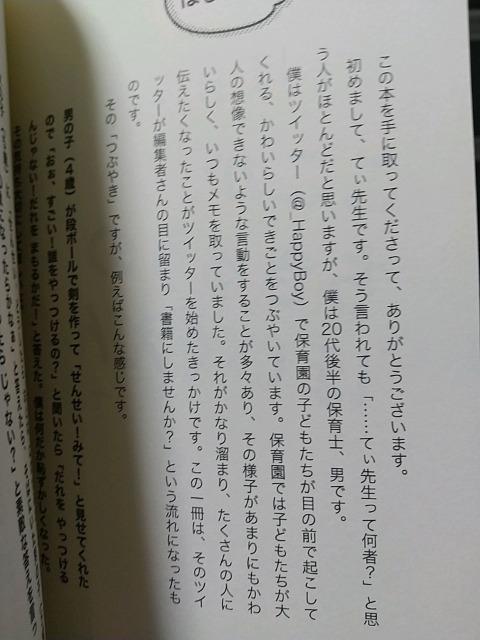 この本を手に取ってくださって、ありがとうございます。
初めまして、てぃ先生です。そう言われても「……てぃ先生って何者？」と思
う人がほとんどだと思いますが、僕は20代後半の保育士、男です。
僕はツイッター（@_HappyBoy）で保育園の子どもたちが目の前で起こして
くれる、かわいらしいできごとをつぶやいています。保育園では子どもたちが大
人の想像できないような言動をすることが多々あり、その様子があまりにもかわ
いらしく、いつもメモを取っていました。それがかなり溜まり、たくさんの人に
伝えたくなったことがツイッターを始めたきっかけです。この一冊は、そのツイ
ッターが編集者さんの目に留まり「書籍にしませんか？」という流れになったも
のです。
その「つぶやき」ですが、例えばこんな感じです。
男の子（4歳）が段ボールで剣を作って「せんせい！みて！」と見せてくれた
ので「おぉ、すごい！誰をやっつけるの？」と聞いたら「だれを やっつける
んじゃない！だれを まもるかだ！」と答えた。僕は何だか恥ずかしくなった。